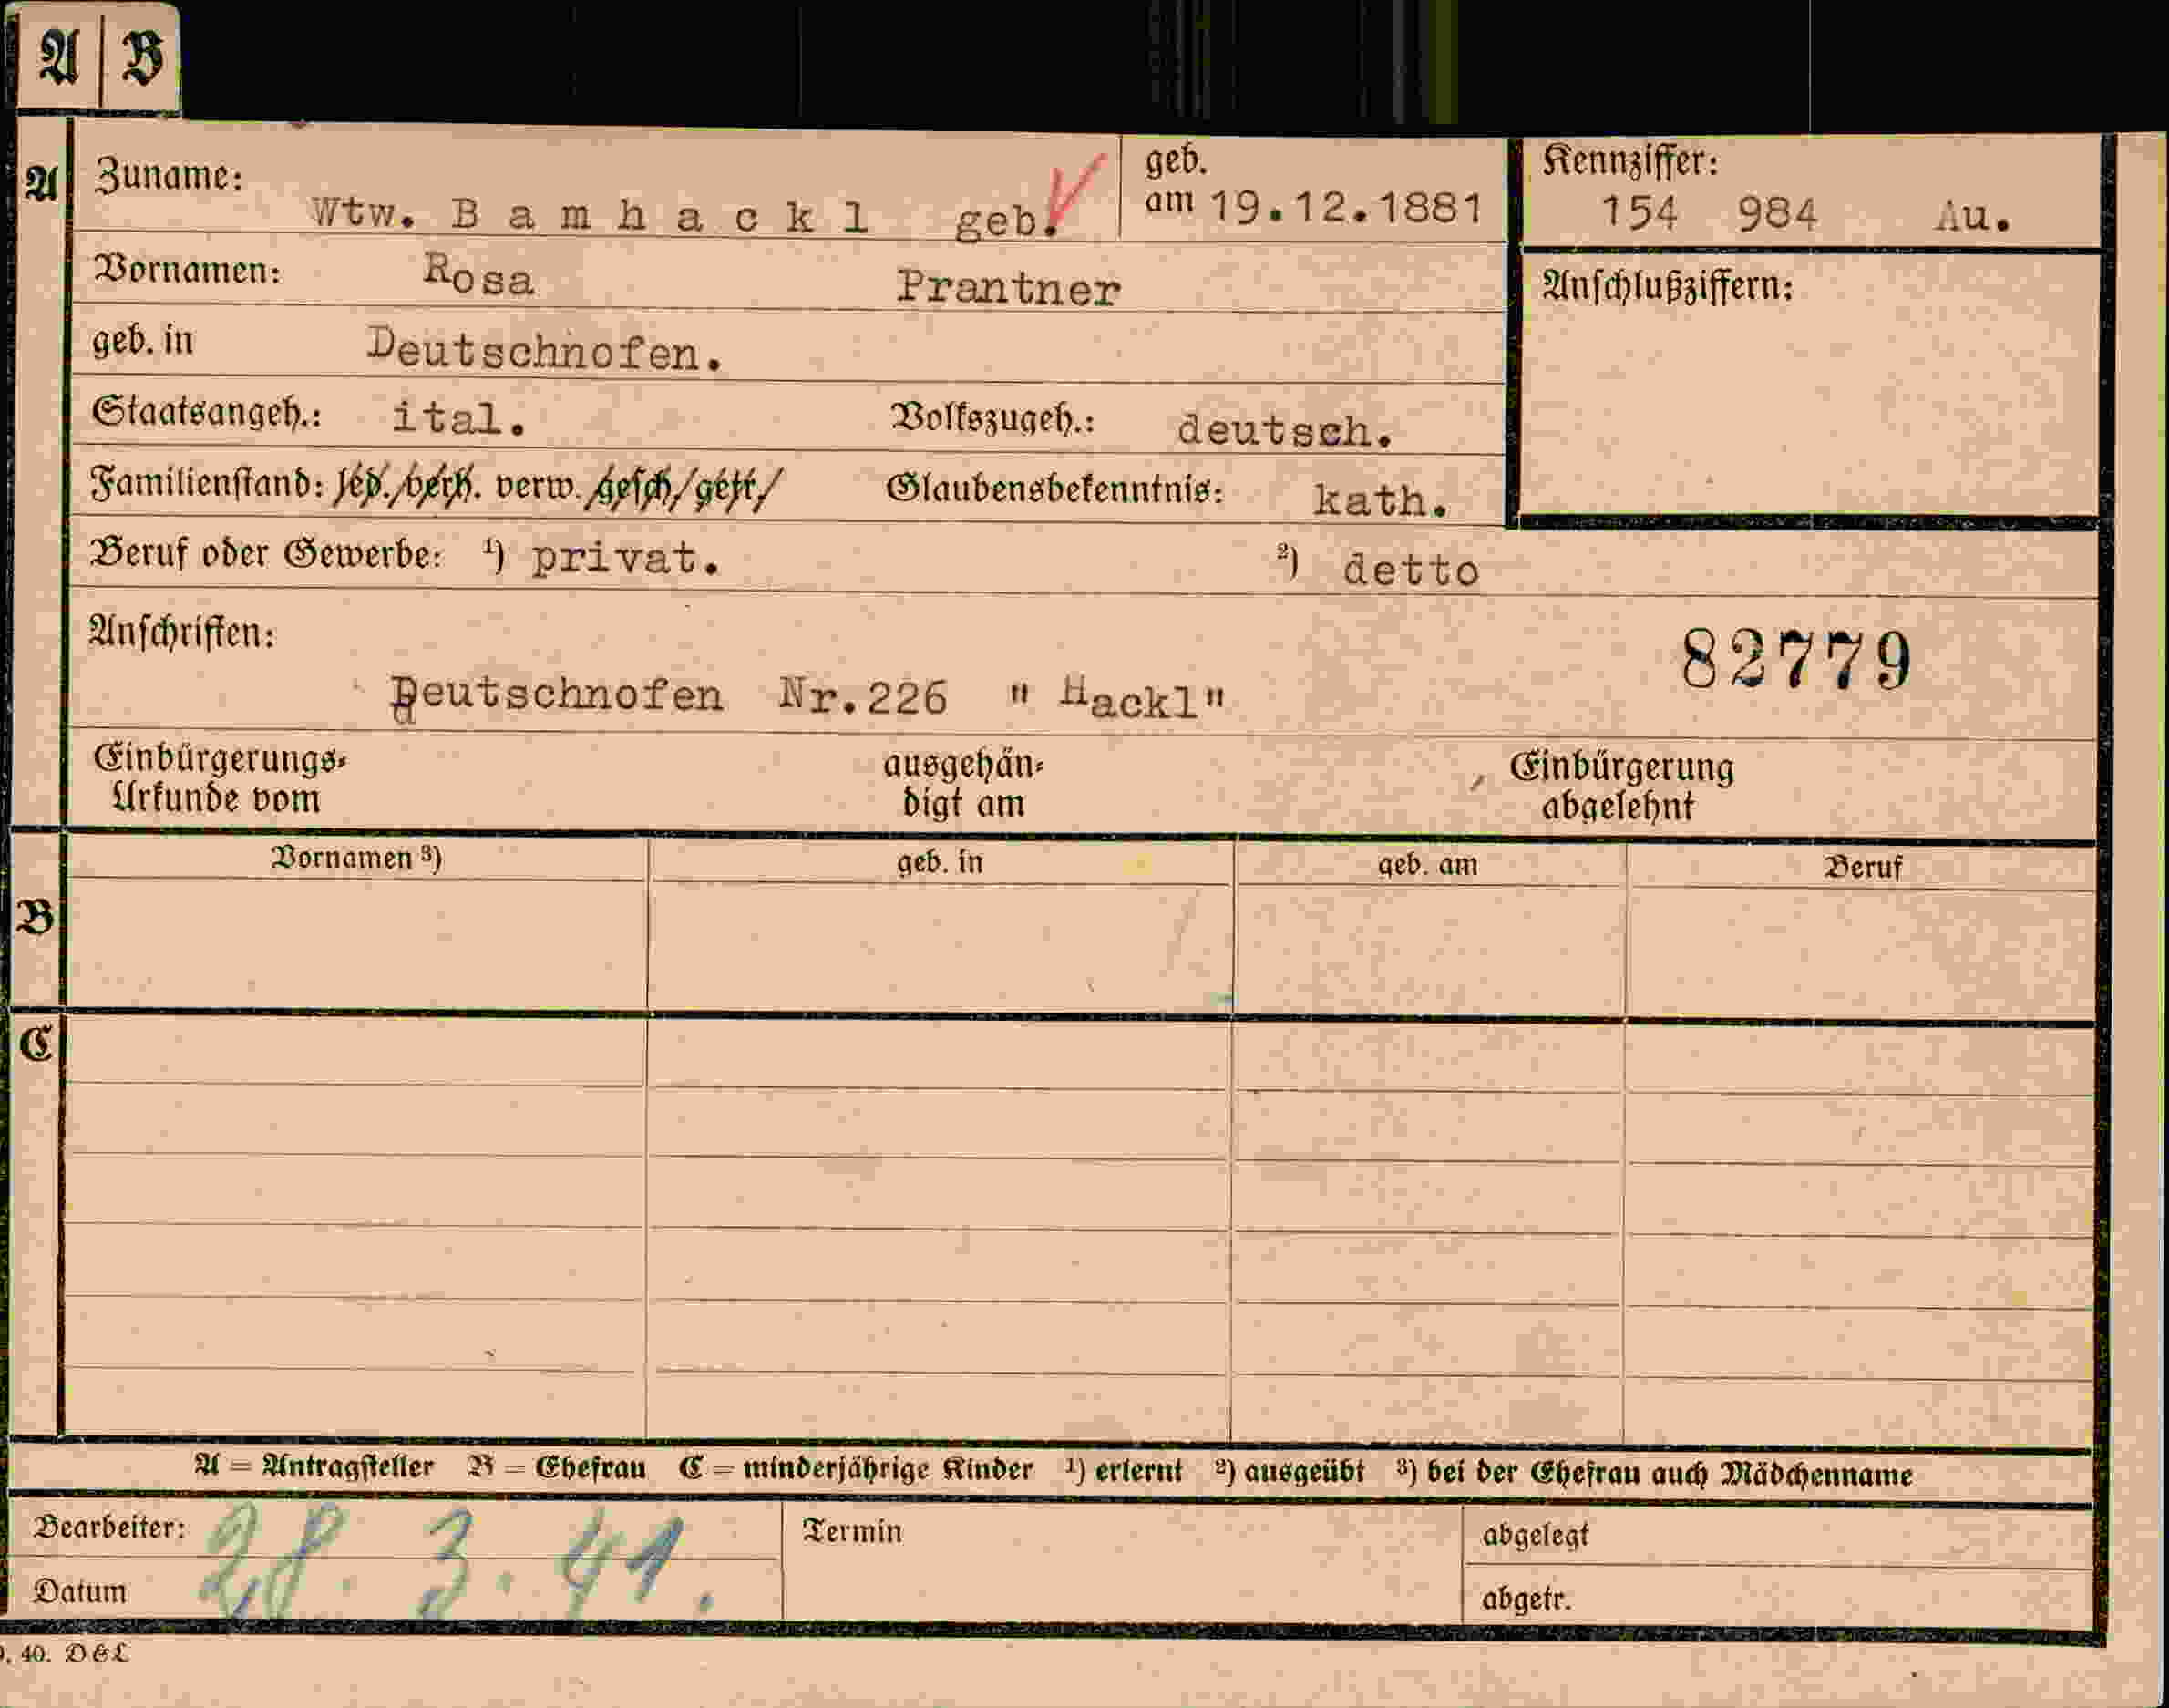 A | B
A
Zuname: Wtw. B a m h a c k l geb.
geb. am 19.12.1881
Kennziffer: 154 984 Au.
Vornamen: Rosa Prantner
Anschlußziffern:
geb. in Deutschnofen.
Staatsangeh.: ital. Volkszugeh.: deutsch.
Familienstand: led. verh. verw. gesch. getr. Glaubensbekenntnis: kath.
Beruf oder Gewerbe: ¹) privat. ²) detto
Anschriften:
82779
Deutschnofen Nr.226 " Hackl"
Einbürgerungs-
Urkunde vom
ausgehän-
digt am
Einbürgerung
abgelehnt
B
Vornamen ³) geb. in geb. am Beruf
C
A = Antragsteller B = Ehefrau C = minderjährige Kinder ¹) erlernt ²) ausgeübt ³) bei der Ehefrau auch Mädchenname
Bearbeiter: Termin abgelegt
28. 3. 41.
Datum abgetr.
40. D&L